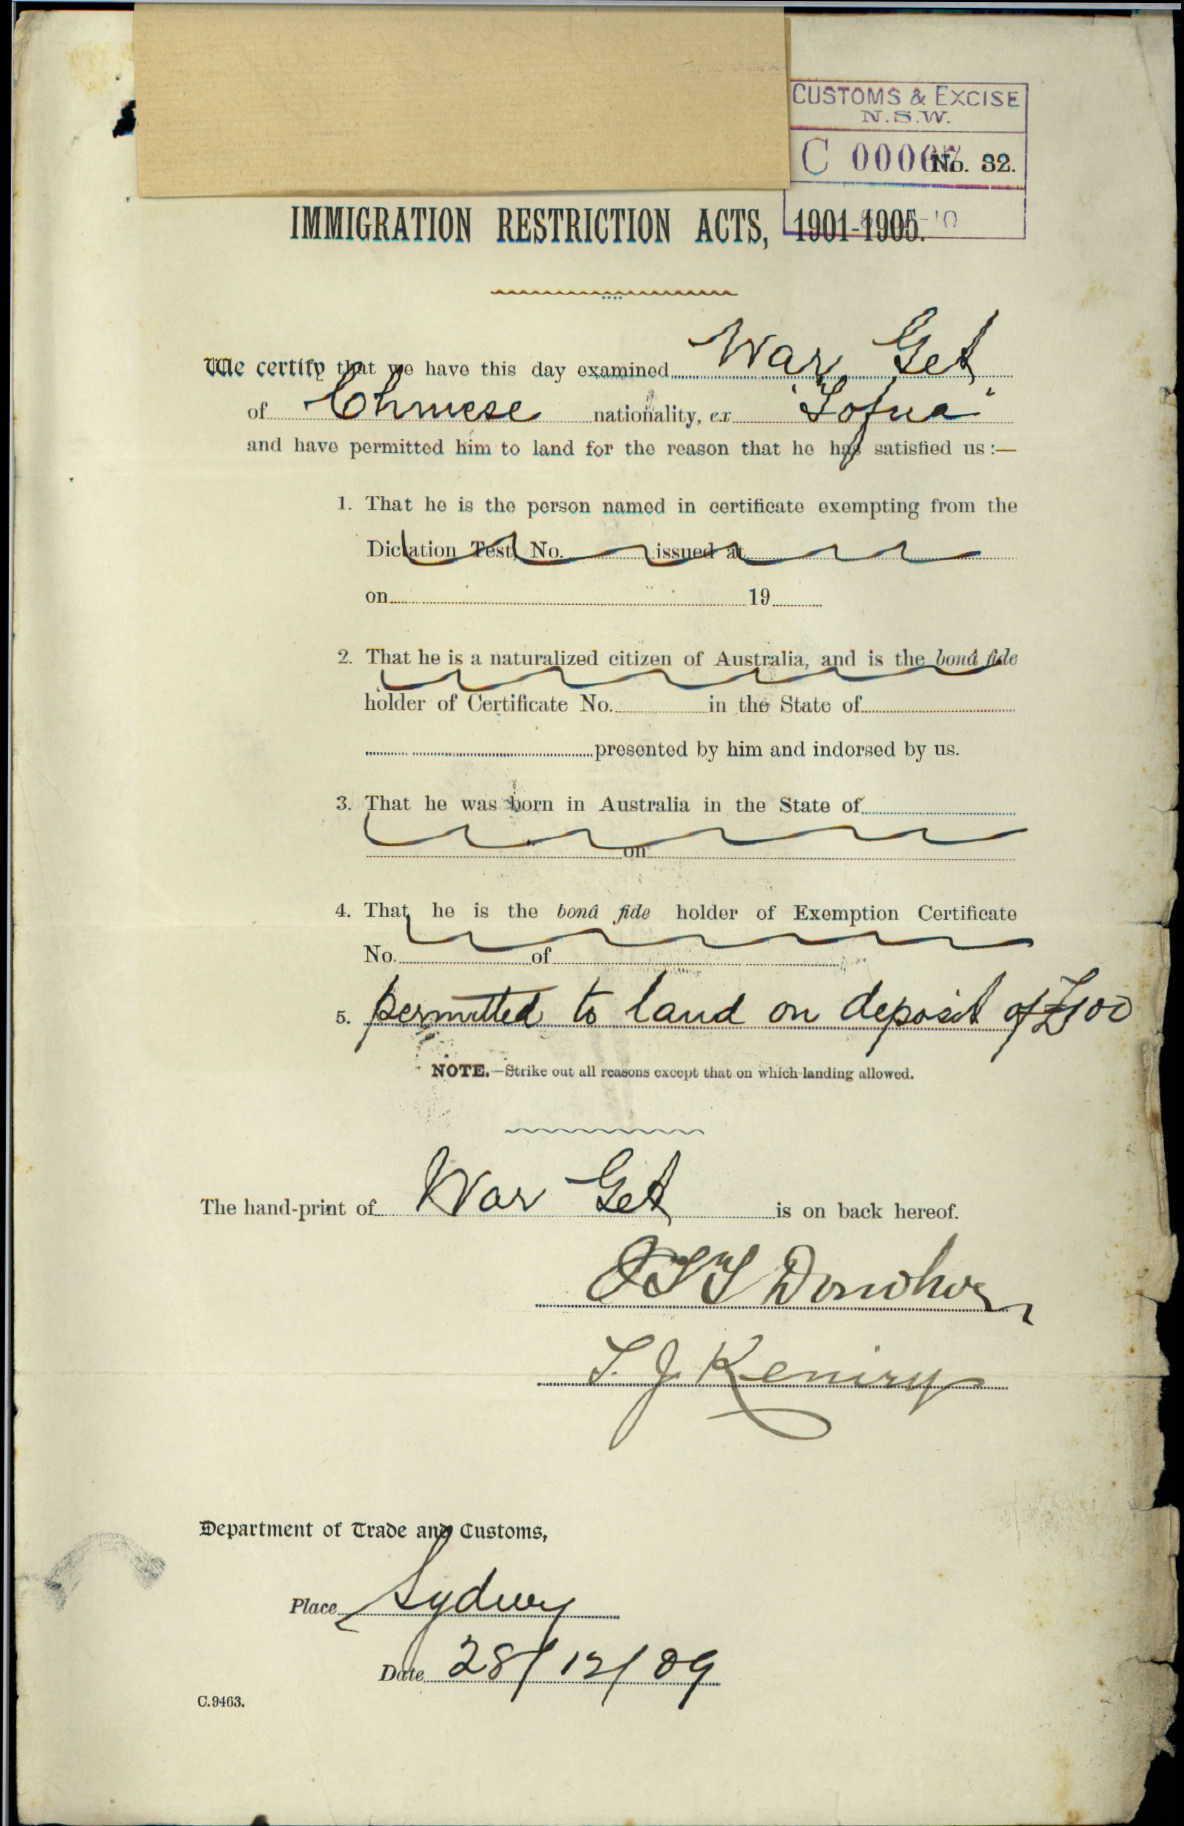 CUSTOMS & EXCISE
N.S.W.
C 00067 No. 32.
IMMIGRATION RESTRICTION ACTS, 1901-1905.
We certify that we have this day examined War Get
of Chinese nationality, ex "Tofua"
and have permitted him to land for the reason that he has satisfied us :—
1. That he is the person named in certificate exempting from the
Dictation Test, No. issued at
on 19
2. That he is a naturalized citizen of Australia, and is the bonâ fide
holder of Certificate No. in the State of
presented by him and indorsed by us.
3. That he was born in Australia in the State of
on
4. That he is the bonâ fide holder of Exemption Certificate
No. of
5. permitted to land on deposit of £100
NOTE.—Strike out all reasons except that on which landing allowed.
The hand-print of War Get is on back hereof.
J T T Donohoe
T. J. Keniry
Department of Trade and Customs,
Place Sydney
Date 28/12/09
C.9463.